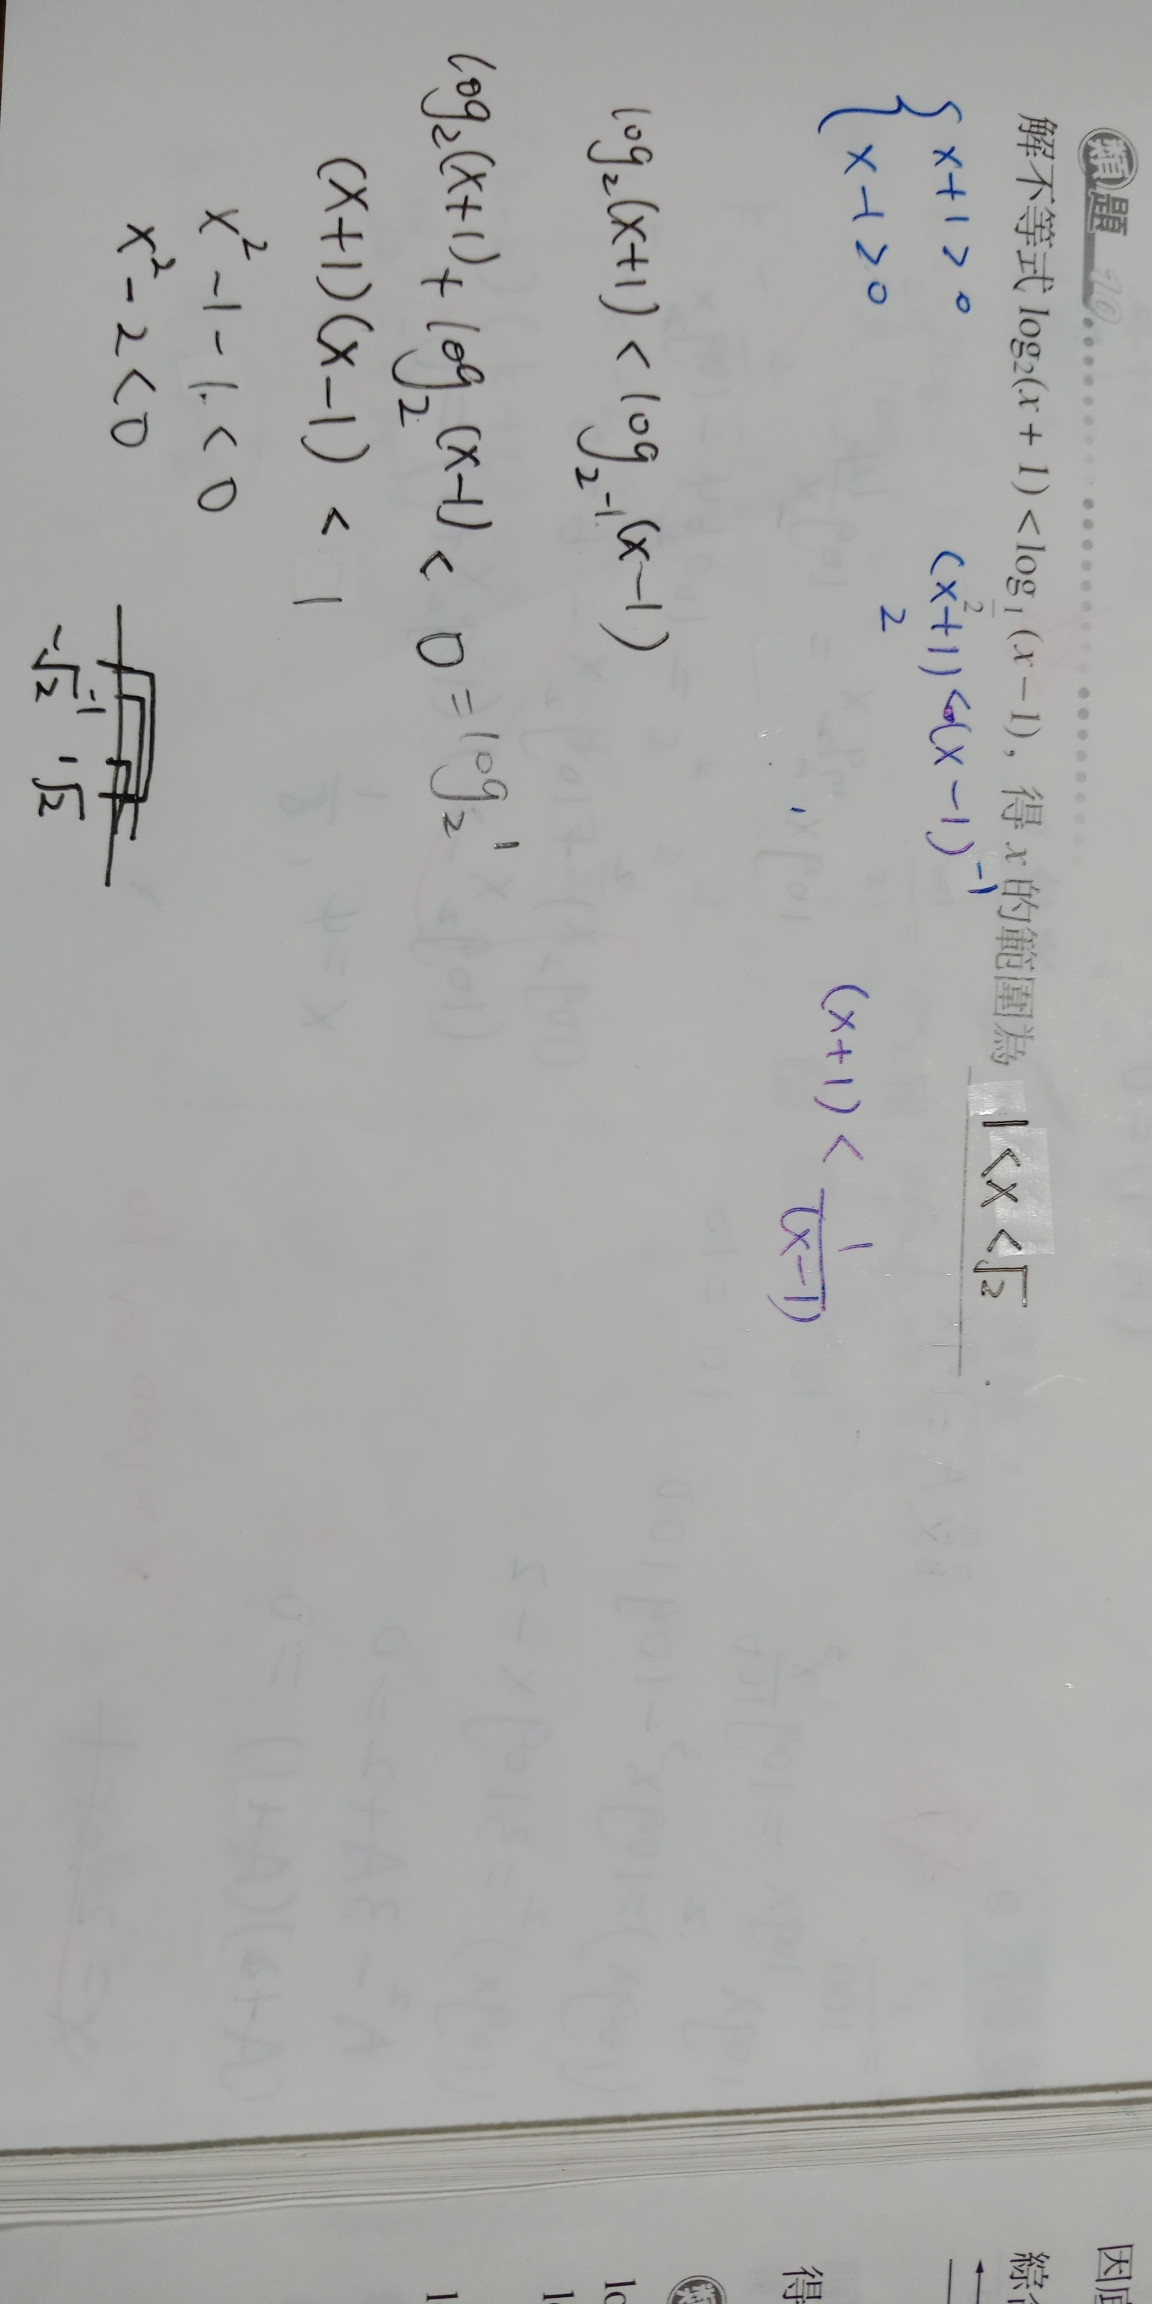 類題 10
解不等式 log₂(x + 1) < log_{1/2}(x − 1), 得 x 的範圍為 1 < x < √2 .
{ x+1 > 0
x−1 > 0
(x+1) < (x−1)⁻¹
(x+1) < 1/(x−1)
log₂(x+1) < log₂⁻¹(x−1)
log₂(x+1) + log₂(x−1) < 0 = log₂1
(x+1)(x−1) < 1
x² − 1 − 1 < 0
x² − 2 < 0
−√2 −1 1 √2
綜合
得